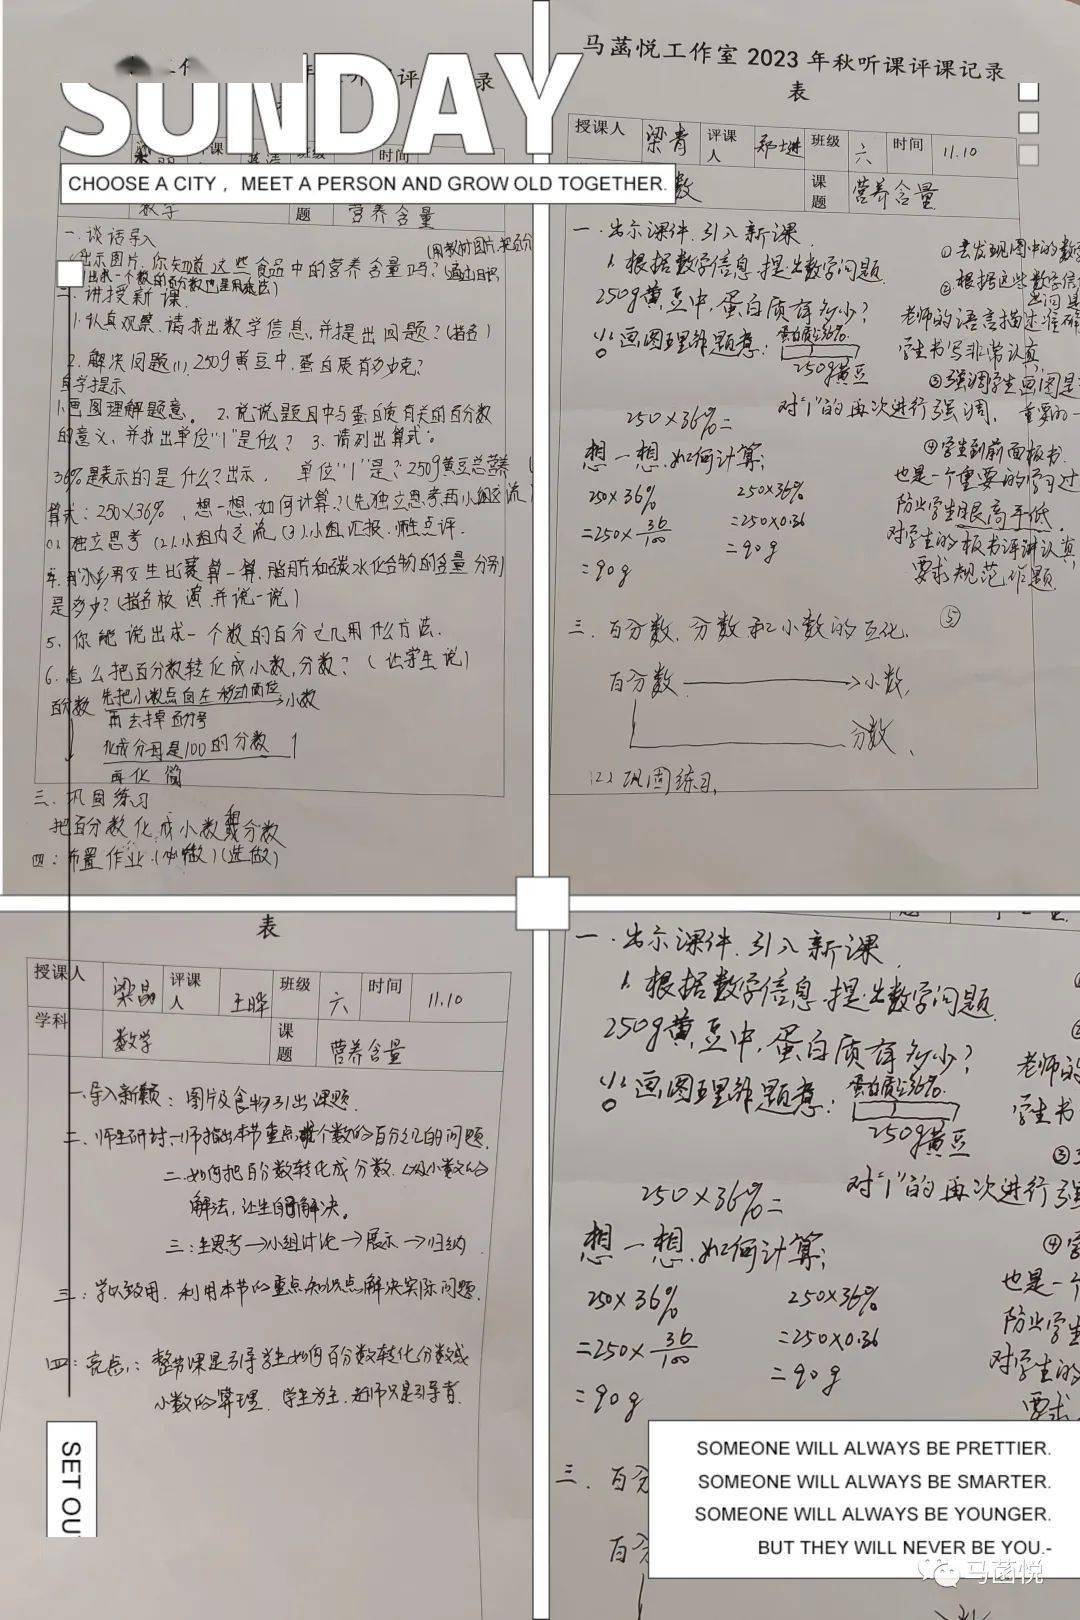 SUNDAY
CHOOSE A CITY， MEET A PERSON AND GROW OLD TOGETHER.
评课记录
班级
时间
数学
题
营养含量
一.谈话导入
出示图片,你知道这些食品中的营养含量吗?
二.讲授新课
1.认真观察,请找出数学信息,并提出问题?(指名)
2.解决问题(1).250g黄豆中,蛋白质有多少克?
自学提示
1.画图理解题意。 2.说说题目中与蛋白质有关的百分数
的意义,并找出单位"1"是什么? 3.请列出算式。
36%是表示的是什么?出示, 单位"1"是?250g黄豆总营养
算式:250×36%,想一想,如何计算?(先独立思考,再小组交流)
(1).独立思考 (2).小组内交流 (3).小组汇报.师生点评.
算一算,脂肪和碳水化合物的含量分别
是多少?(指名板演,并说一说)
5.你能说出求一个数的百分之几用什么方法.
6.怎么把百分数转化成小数,分数?(让学生说)
百分数 先把小数点向左移动两位 小数
再去掉百分号
化成分母是100的分数
再化简
三.巩固练习
把百分数化成小数或分数
四:布置作业.(必做)(选做)
马菡悦工作室 2023 年秋听课评课记录
表
授课人 梁青 评课人 班级 六 时间 11.10
数 课题 营养含量
一.出示课件.引入新课.
1.根据数学信息提出数学问题.
250g黄豆中,蛋白质有多少?
画图理解题意: 蛋白质占36%
250g黄豆
250×36%=
想一想,如何计算;
250×36%
=250×36/100
=90g
250×36%
=250×0.36
=90g
①去发现图中的数学
②根据这些数学信
老师的语言描述准确
学生书写非常认真
③强调学生画图是
对"1"的再次进行强调, 重要的一
④学生到前面板书
也是一个重要的学习过
防止学生眼高手低.
对学生的板书评讲认真,
要求规范作题
⑤
三.百分数.分数和小数的互化.
百分数 小数,
分数.
(2)巩固练习.
表
授课人 梁晶 评课人 王晔 班级 六 时间 11.10
学科 数学 课题 营养含量
一.导入新颖: 图片及食物引出课题.
二.师生研讨:一.师指出本节重点,求一个数的百分之几的问题.
二.如何把百分数转化成分数.以及小数的
解法,让生自己解决。
三:生思考→小组讨论→展示→归纳.
三:学以致用.利用本节的重点知识点解决实际问题.
四:亮点: 整节课是引导学生如何百分数转化分数或
小数的算理.学生为主.老师只是引导者.
一.出示课件.引入新课.
1.根据数学信息提出数学问题.
250g黄豆中,蛋白质有多少?
画图理解题意: 蛋白质占36%.
250g黄豆
250×36%=
想一想,如何计算;
250×36%
=250×36/100
=90g
250×36%
=250×0.36
=90g
老师的
学生书
③
对"1"的再次进行强
④学
也是一个
防止学生
对学生的
要求
三.百分
百分
SET OU
SOMEONE WILL ALWAYS BE PRETTIER.
SOMEONE WILL ALWAYS BE SMARTER.
SOMEONE WILL ALWAYS BE YOUNGER.
BUT THEY WILL NEVER BE YOU.-
马菡悦